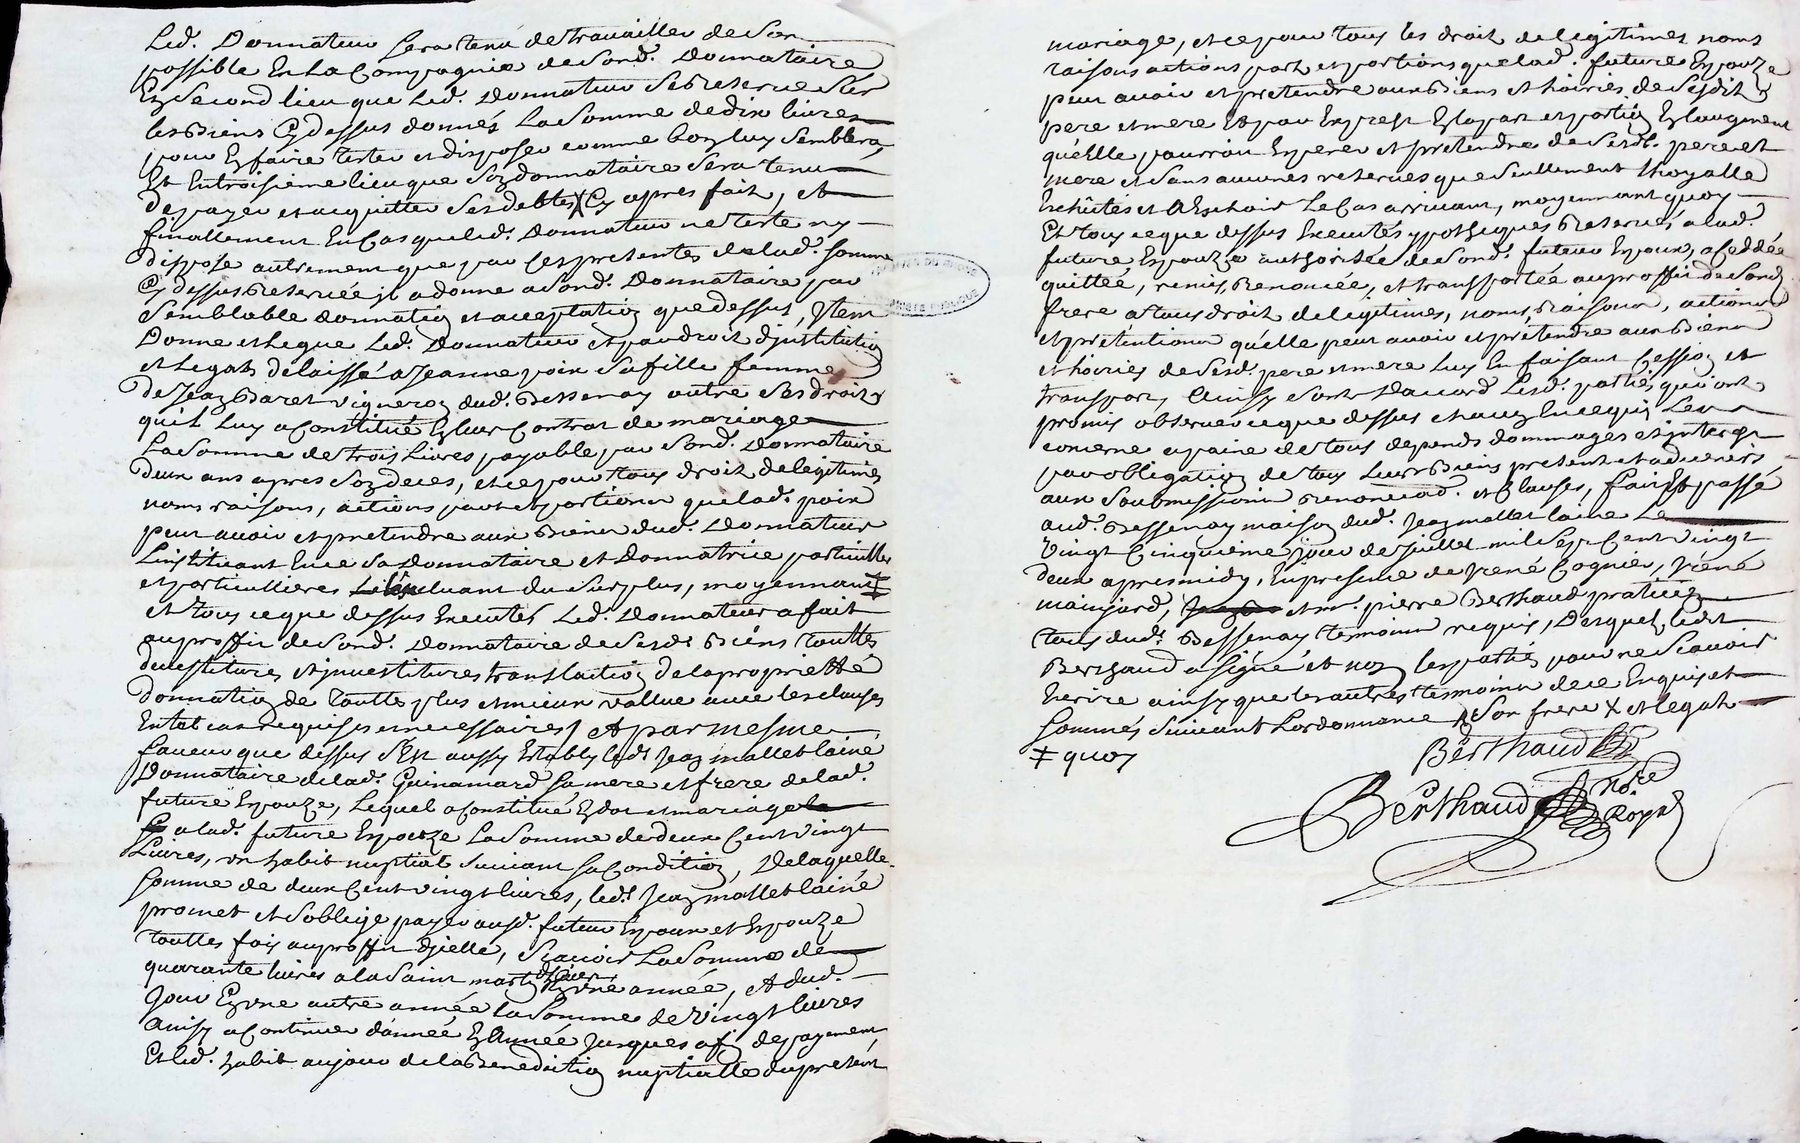 Led. Donnateur sera tenu de travailler de son
possible En La Compagnie de Sond. Donnataire
En Second lieu que Led. Donnateur Se Reserve Sur
les Biens Cy dessus donnés La Somme de dix livres
pour En faire tester et disposer comme bon luy Semblera,
Et En troisieme lieu que Son donnataire Sera tenu
de payer et acquitter Ses debtes X Cy apres fait, et
finallement En Cas que led. Donnateur ne teste ny
dispose autrement que par Ces presentes de lad. Somme
Cy dessus Reservée il a donné a Sond. Donnataire par
Semblable donnation et acceptation que dessus, Item
Donne et Legue Led. Donnateur et par droit d'institution
et Legat delaissé a Jeanne poix Sa fille femme
de Jean Baret vigneron dud. Bessenay outre Ses droits
quil Luy a Constitué En leur Contrat de mariage
La Somme de trois Livres payable par Sond. Donnataire
deux ans apres Son deces, et ce pour tous droit de legitimes
noms raisons, actions part et portions que lad. poix
peut avoir et pretendre aux Biens dud. Donnateur
L'instituant En ce Sa Donnataire et Donnatrice particulle
et particulliere L'excluant du Surplus, moyennant ‡
et tous ce que dessus Executés Led. Donnateur a fait
au proffit de Sond. Donnataire de Sesd. Biens touttes
devestitures et investitures translation de la proprietté
donnation de touttes plus et mieux vallue avec les clauses
En tel cas requises et necessaires, Et par mesme
faveur que dessus S'est aussy Estably led. Jean mallet lainé
Donnataire de lad. Guinamard Sa mere et frere de lad.
future Espouze, Lequel a Constitué En dot et mariage
a lad. future Espouze La Somme de deux Cent vingt
Livres, un habit nuptial Suivant Sa Condition, De laquelle
Somme de deux Cent vingt livres, led. Jean mallet lainé
promet et Soblige payer ausd. futeur Espoux et Espouze
touttes fois au proffit d'jcelle, Scavoir La Somme de
quarante livres a la Saint martin d'hiver En une année, et dud.
Jour En une autre année la Somme de vingt livres
Ainsy a Continuer d'année En Année Jusques a fin de payement
Et led. habit au jour de la Benediction nuptialle du présent
mariage, et ce pour tous les droit de legitimes noms
raisons actions part et portions que lad. future Espouze
peut avoir et pretendre aux Biens et hoiries de Sesdits
pere et mere Et par Exprest En la part et portion En laugment
qu'Elle pourroit Esperer et pretendre de Sesd. pere et
mere et Sans aucunes reserves que Seullement Lhoyalle
Escheutes et A Eschoir Le Cas arrivant, moyennant quoy
Et tous ce que dessus Executés ypotheques Reservés a lad.
future Espouze authorisée de Sond. futeur Espoux, a ceddée
quittée, remis, Renoncée, et transportée au proffit de Sond.
frere a tous droit de legitimes, noms, Raisons, actions
et prétentions qu'elle peut avoir et prétendre aux Biens
et hoiries de Sesd. pere et mere Luy En faisant Cession et
transport, Ainsy Sont D'accord Lesd. parties qui ont
promis observer ce que dessus chacun En ce qui Les
concerne a paine de tous depends dommages et interest
par obligation de tous Leurs Biens present et advenirs
aux Soubmissions Renonciaōn. et Clauses, fait Et passé
aud. Bessenay maison dud. Jean mallet laine Le
vingt Cinquieme jour de Juillet mil Sept Cent vingt
deux apres midy, En presence de René Cognier, René
mainjard, et mr. pierre Berthaud praticien
tous dud. Bessenay temoins requis, Desquels ledit
Berthaud a Signé et non les parties pour ne Scavoir
Escrire ainsy que les autres temoins de ce Enquis et
Sommés Suivant Lordonnance X Son frere X et legats
‡ quoy
Berthaud
Berthaud Nore
Royal